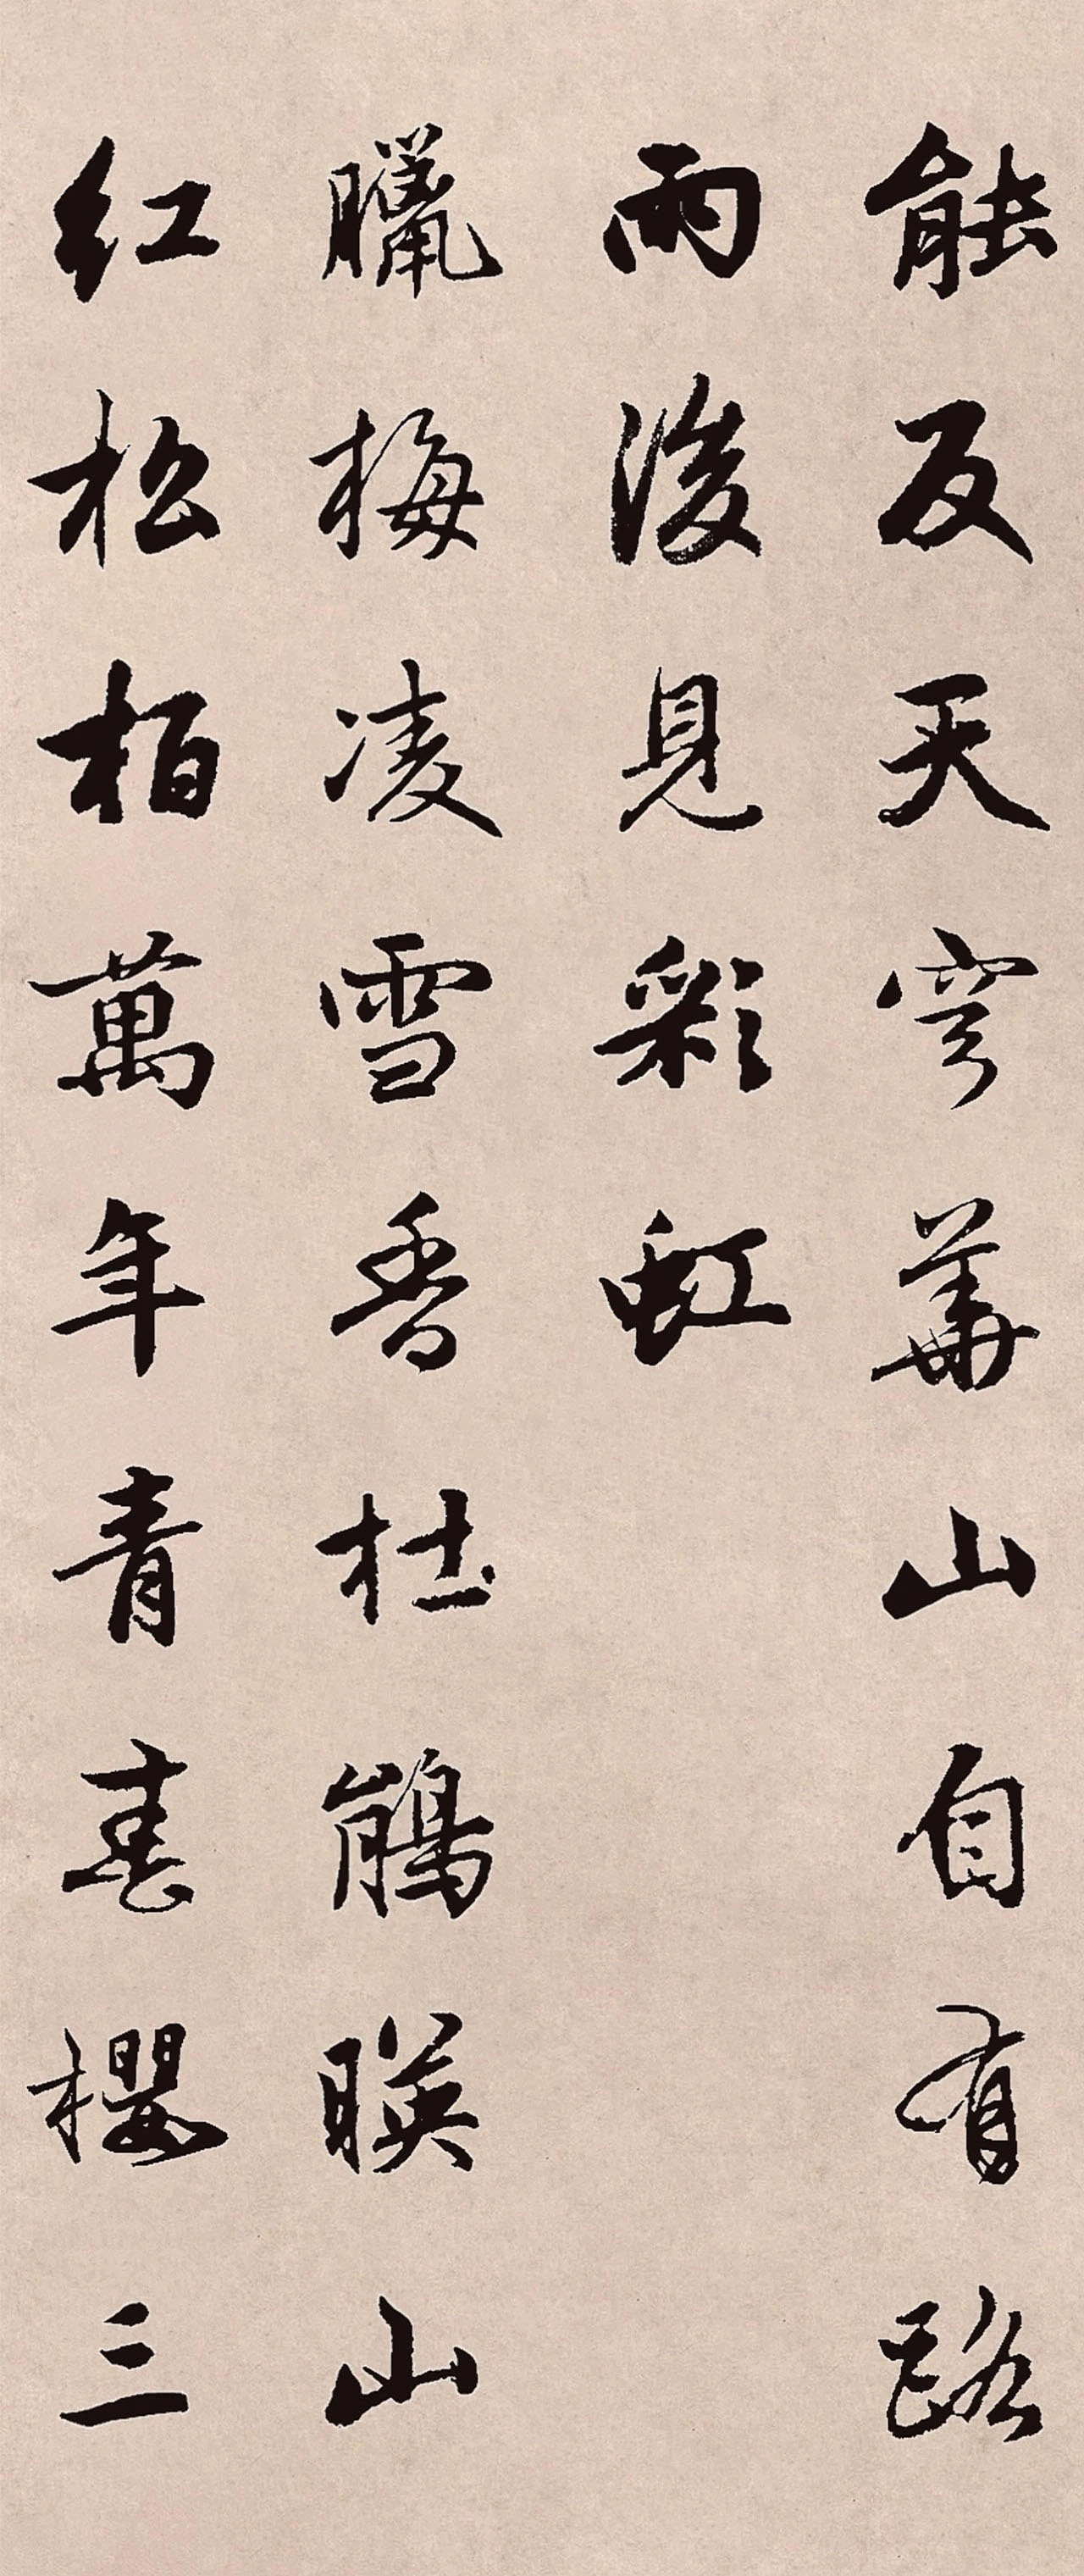 能反天穹華山自有路
雨後見彩虹
臘梅凌雪香杜鵑映山
红松柏萬年青春櫻三